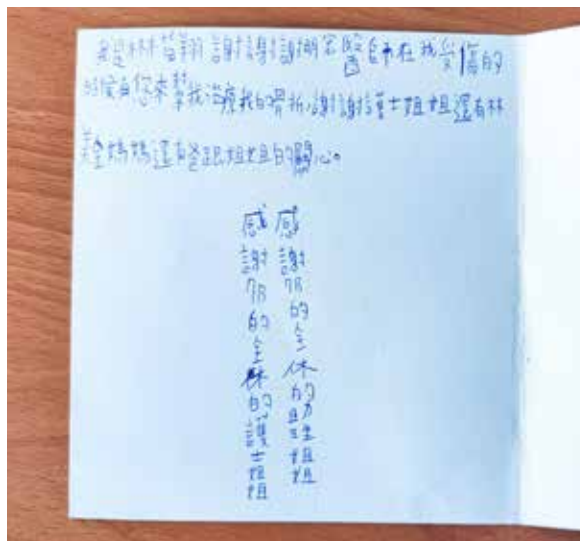 我是林哲翔謝謝謝醫師在我受傷的
時候由您來幫我治療我的骨折,謝謝護士姐姐還有林
媽媽還有爸跟姐姐的關心。
感謝73的全休的助理姐姐
感謝73的全休的護士姐姐